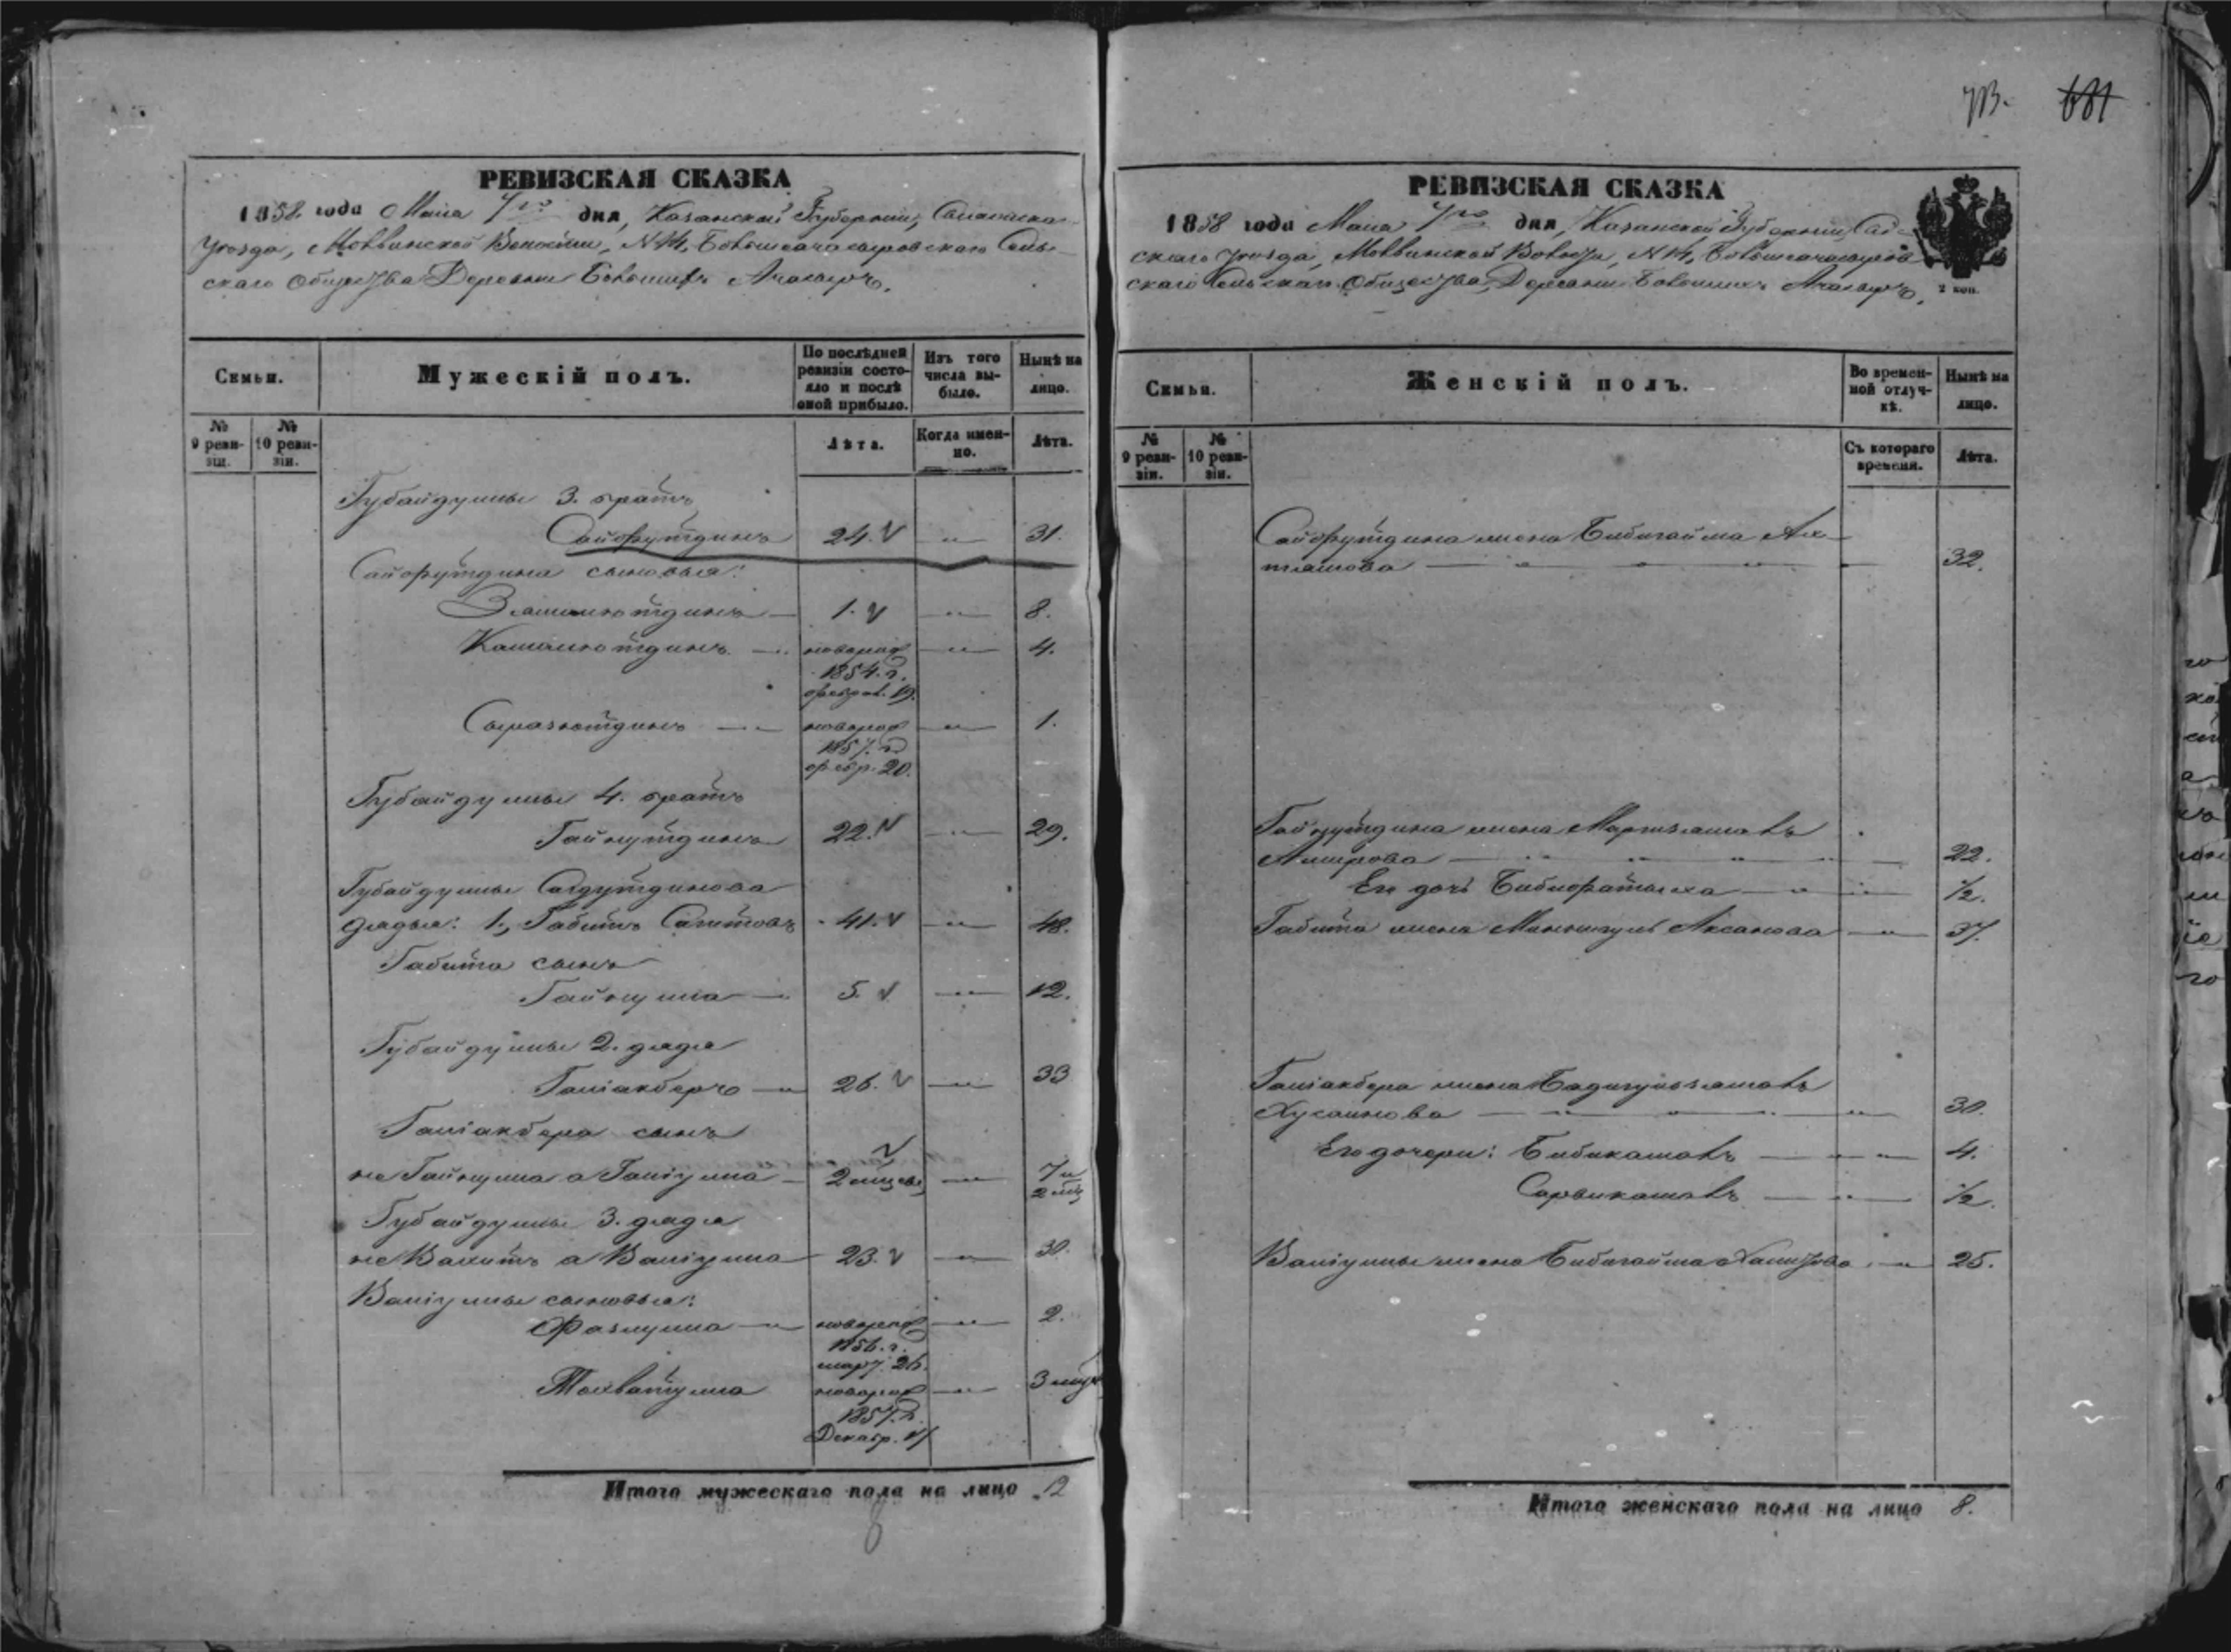 713. 681
РЕВИЗСКАЯ СКАЗКА
1858 года Маiя 7го дня, Казанской Губернии, Спасскаго
Уезда, Волости, № 14, Сель-
скаго Общества Деревни Большихъ Ачасыръ.
Семьи.
Мужескій полъ.
По послѣдней ревизіи состояло и послѣ оной прибыло.
Изъ того числа выбыло.
Нынѣ на лицо.
№ 9 ревизіи.
№ 10 ревизіи.
Лѣта.
Когда именно.
Лѣта.
Губайдуллы 3. братъ
Сайфутдинъ 24. „ 31.
Сайфутдина сыновья:
1. „ 8.
Камалютдинъ — „ новорож „ 4.
1854. г.
феврал. 19.
Сыразютдинъ — „ новорож „ 1.
1857. г.
февр. 20.
Губайдуллы 4. братъ
Гайнутдинъ 22. „ 29.
Губайдуллы Садутдинова
дядья: 1., Габитъ Сагитовъ 41. „ 48.
Габита сынъ
Гайнулла — „ 5. „ 12.
Губайдуллы 2. дядя
Галiакберъ — „ 26. „ 33
Галiакбера сынъ
не Гайнулла а Галiулла — 2 мцевъ „ 7 и
2 мц
Губайдуллы 3. дядя
не Вахитъ а Валiулла 23. „ 30.
Валiуллы сыновья:
Фазлулла — „ новорож „ 2.
1856. г.
март. 26.
новорож „ 3
1857. г.
Декабр. 17
Итого мужескаго пола на лицо 12
РЕВИЗСКАЯ СКАЗКА
1858 года Маiя 7го дня, Казанской Губернии, Спас-
скаго Уезда, Волости, № 14,
скаго Сельскаго Общества, Деревни Большихъ Ачасыръ.
2 коп.
Семьи.
Женскій полъ.
Во временной отлучкѣ.
Нынѣ на лицо.
№ 9 ревизіи.
№ 10 ревизіи.
Съ котораго времени.
Лѣта.
Сайфутдина жена Бибигайша Ах-
тямова — „ „ „ — 32.
Гайнутдина жена
Амирова — „ „ „ „ — 22.
Его дочь Бибифатыха — „ „ 1/2.
Габита жена Миннигуль Ахсанова — „ 37.
Галiакбера жена
Хусаинова — „ „ „ „ 30.
Его дочери: Бибикамалъ — „ „ 4.
Сарвикамалъ — „ 1/2.
Валiуллы жена Бибигайша Хамитова „ 25.
Итого женскаго пола на лицо 8.